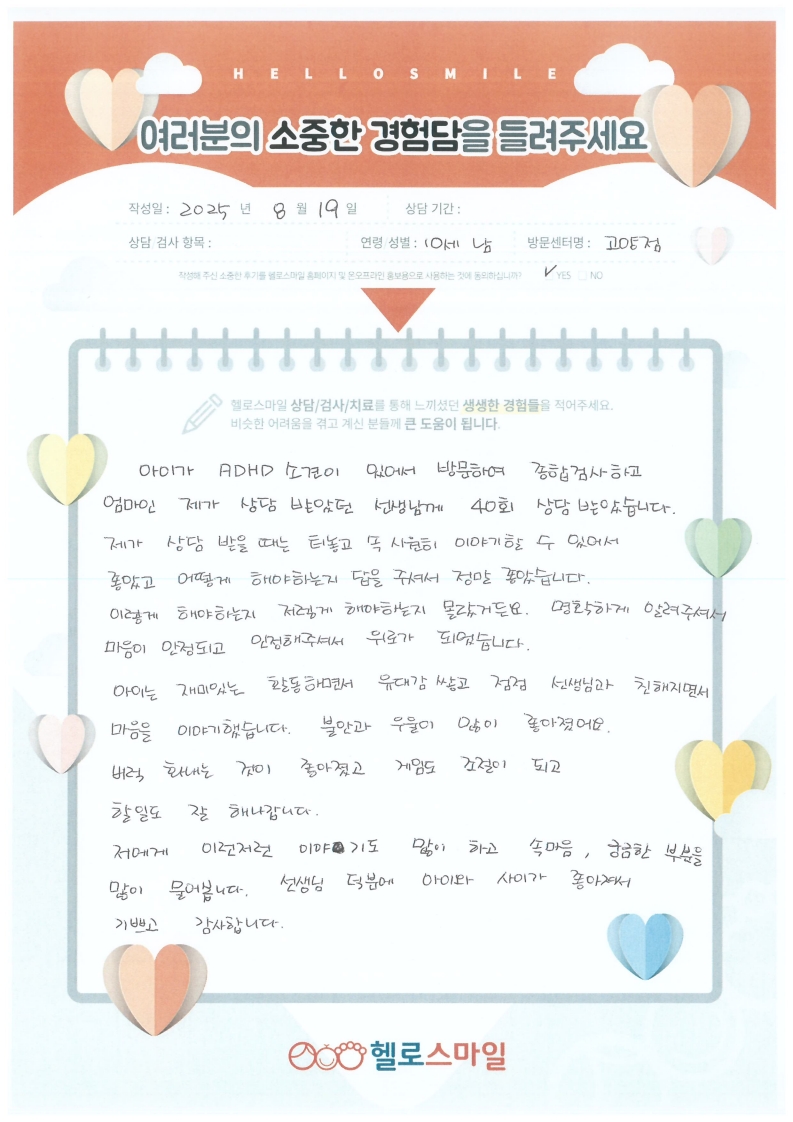 HELLOSMILE
여러분의 소중한 경험담을 들려주세요
작성일 : 2025 년 8 월 19 일 상담 기간 :
상담 검사 항목 : 연령 성별 : 10세 남 방문센터명 : 고양점
작성해 주신 소중한 후기를 헬로스마일 홈페이지 및 온오프라인 홍보용으로 사용하는 것에 동의하십니까? ✓ YES NO
헬로스마일 상담/검사/치료를 통해 느끼셨던 생생한 경험들을 적어주세요.
비슷한 어려움을 겪고 계신 분들께 큰 도움이 됩니다.
아이가 ADHD 소견이 있어서 방문하여 종합검사하고
엄마인 제가 상담 받았던 선생님께 40회 상담 받았습니다.
제가 상담 받을 때는 터놓고 속 시원히 이야기할 수 있어서
좋았고 어떻게 해야하는지 답을 주셔서 정말 좋았습니다.
이렇게 해야하는지 저렇게 해야하는지 몰랐거든요. 명확하게 알려주셔서
마음이 안정되고 인정해주셔서 위로가 되었습니다.
아이는 재미있는 활동하면서 유대감 쌓고 점점 선생님과 친해지면서
마음을 이야기했습니다. 불안과 우울이 많이 좋아졌어요.
버럭 화내는 것이 좋아졌고 게임도 조절이 되고
할일도 잘 해나갑니다.
저에게 이런저런 이야기도 많이 하고 속마음, 궁금한 부분을
많이 물어봅니다. 선생님 덕분에 아이와 사이가 좋아져서
기쁘고 감사합니다.
헬로스마일